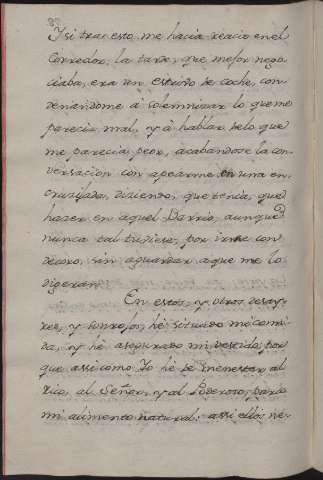 Y si tras esto me hacia reacio en el
Corredor, la tarde, que mejor nego
ciaba, era un estrivo de coche, con
denandome à solemnizar lo que me
parecia mal, y à hablar de lo que
me parecia peor, acabandose la con
versacion con apearme en una en
cruzijada, diziendo, que tenia, que
hazer en aquel Barrio, aunque
nunca tal tubiese, por irme con
decoro, sin aguardar a que me lo
digeran.
En estos, y otros desay
res, y sonrojos, hé situado mi comi
da, y hé asegurado mi vestido, por
que assi como Yo hé de menester al
Rico, al Señor, y al Poderoso, para
mi aumento natural: assi ellos ne-